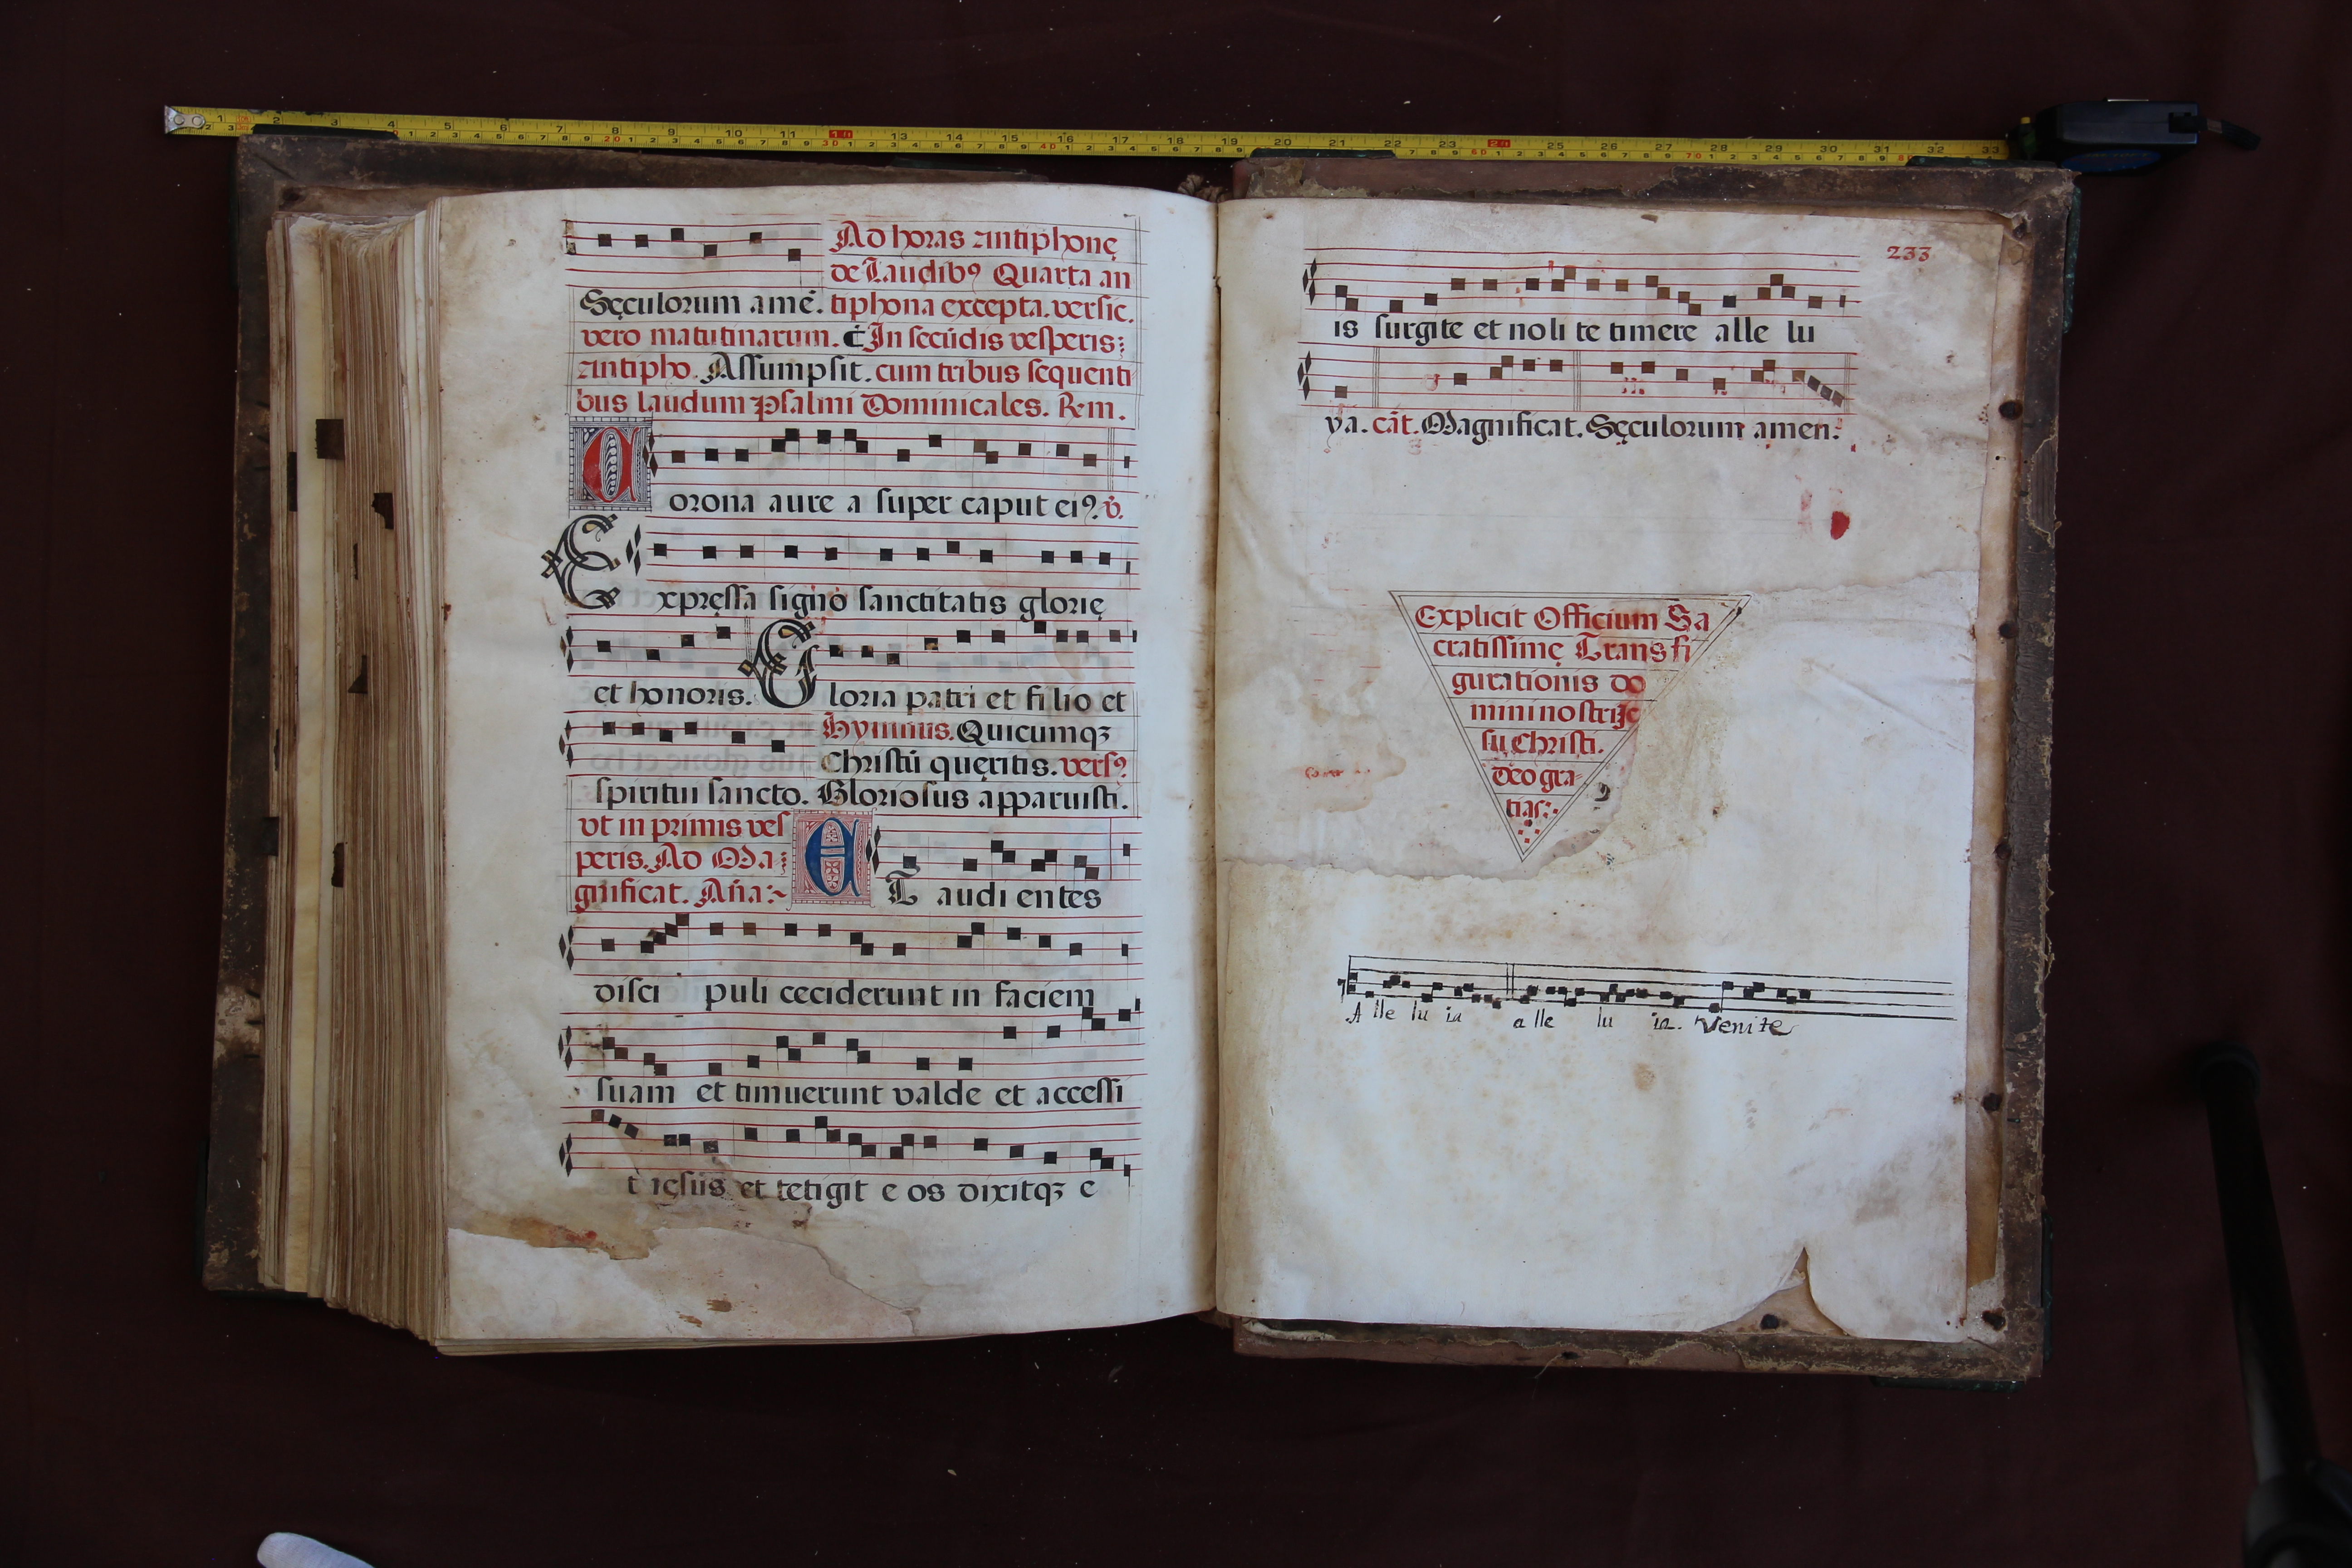 Ad horas antiphonę
de Laudibꝰ Quarta an
Sęculorum amē. tiphona excepta. versic.
vero matutinarum. In secūdis vesperis:
antipho. Assumpsit. cum tribus sequenti
bus laudum Psalmi Dominicales. Rm.
Corona aure a super caput eiꝰ. v.
Expręssa signo sanctitatis glorię
et honoris. Gloria patri et filio et
Hymnus. Quicumqꝫ
Christū quęritis. versꝰ
spiritui sancto. Gloriosus apparuisti.
vt in primis ves
peris. Ad Ma
gnificat. Aña:~
ET audi entes
disci puli ceciderunt in faciem
suam et timuerunt valde et accessi
t ięsus et tetigit e os dixitqꝫ e
233
is surgite et no li te timere alle lu
ya. cāt. Magnificat. Sęculorum amen.
Explicit Officium Sa
cratissimę Transfi
gurationis do
mini nostri Ię
su Christi.
deo gra
tias:.
A lle lu ia a lle lu ia. Venite